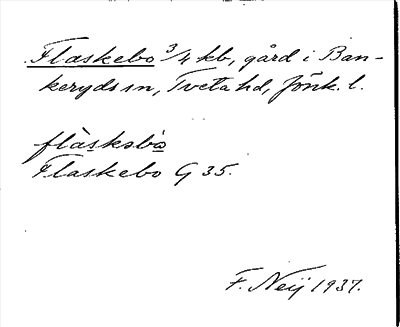 Flaskebo 3/4 kb, gård i Ban-
keryds sn, Tveta hd, Jönk. l.
flàskəbò
Flaskebo G 35.
F. Neij 1937.